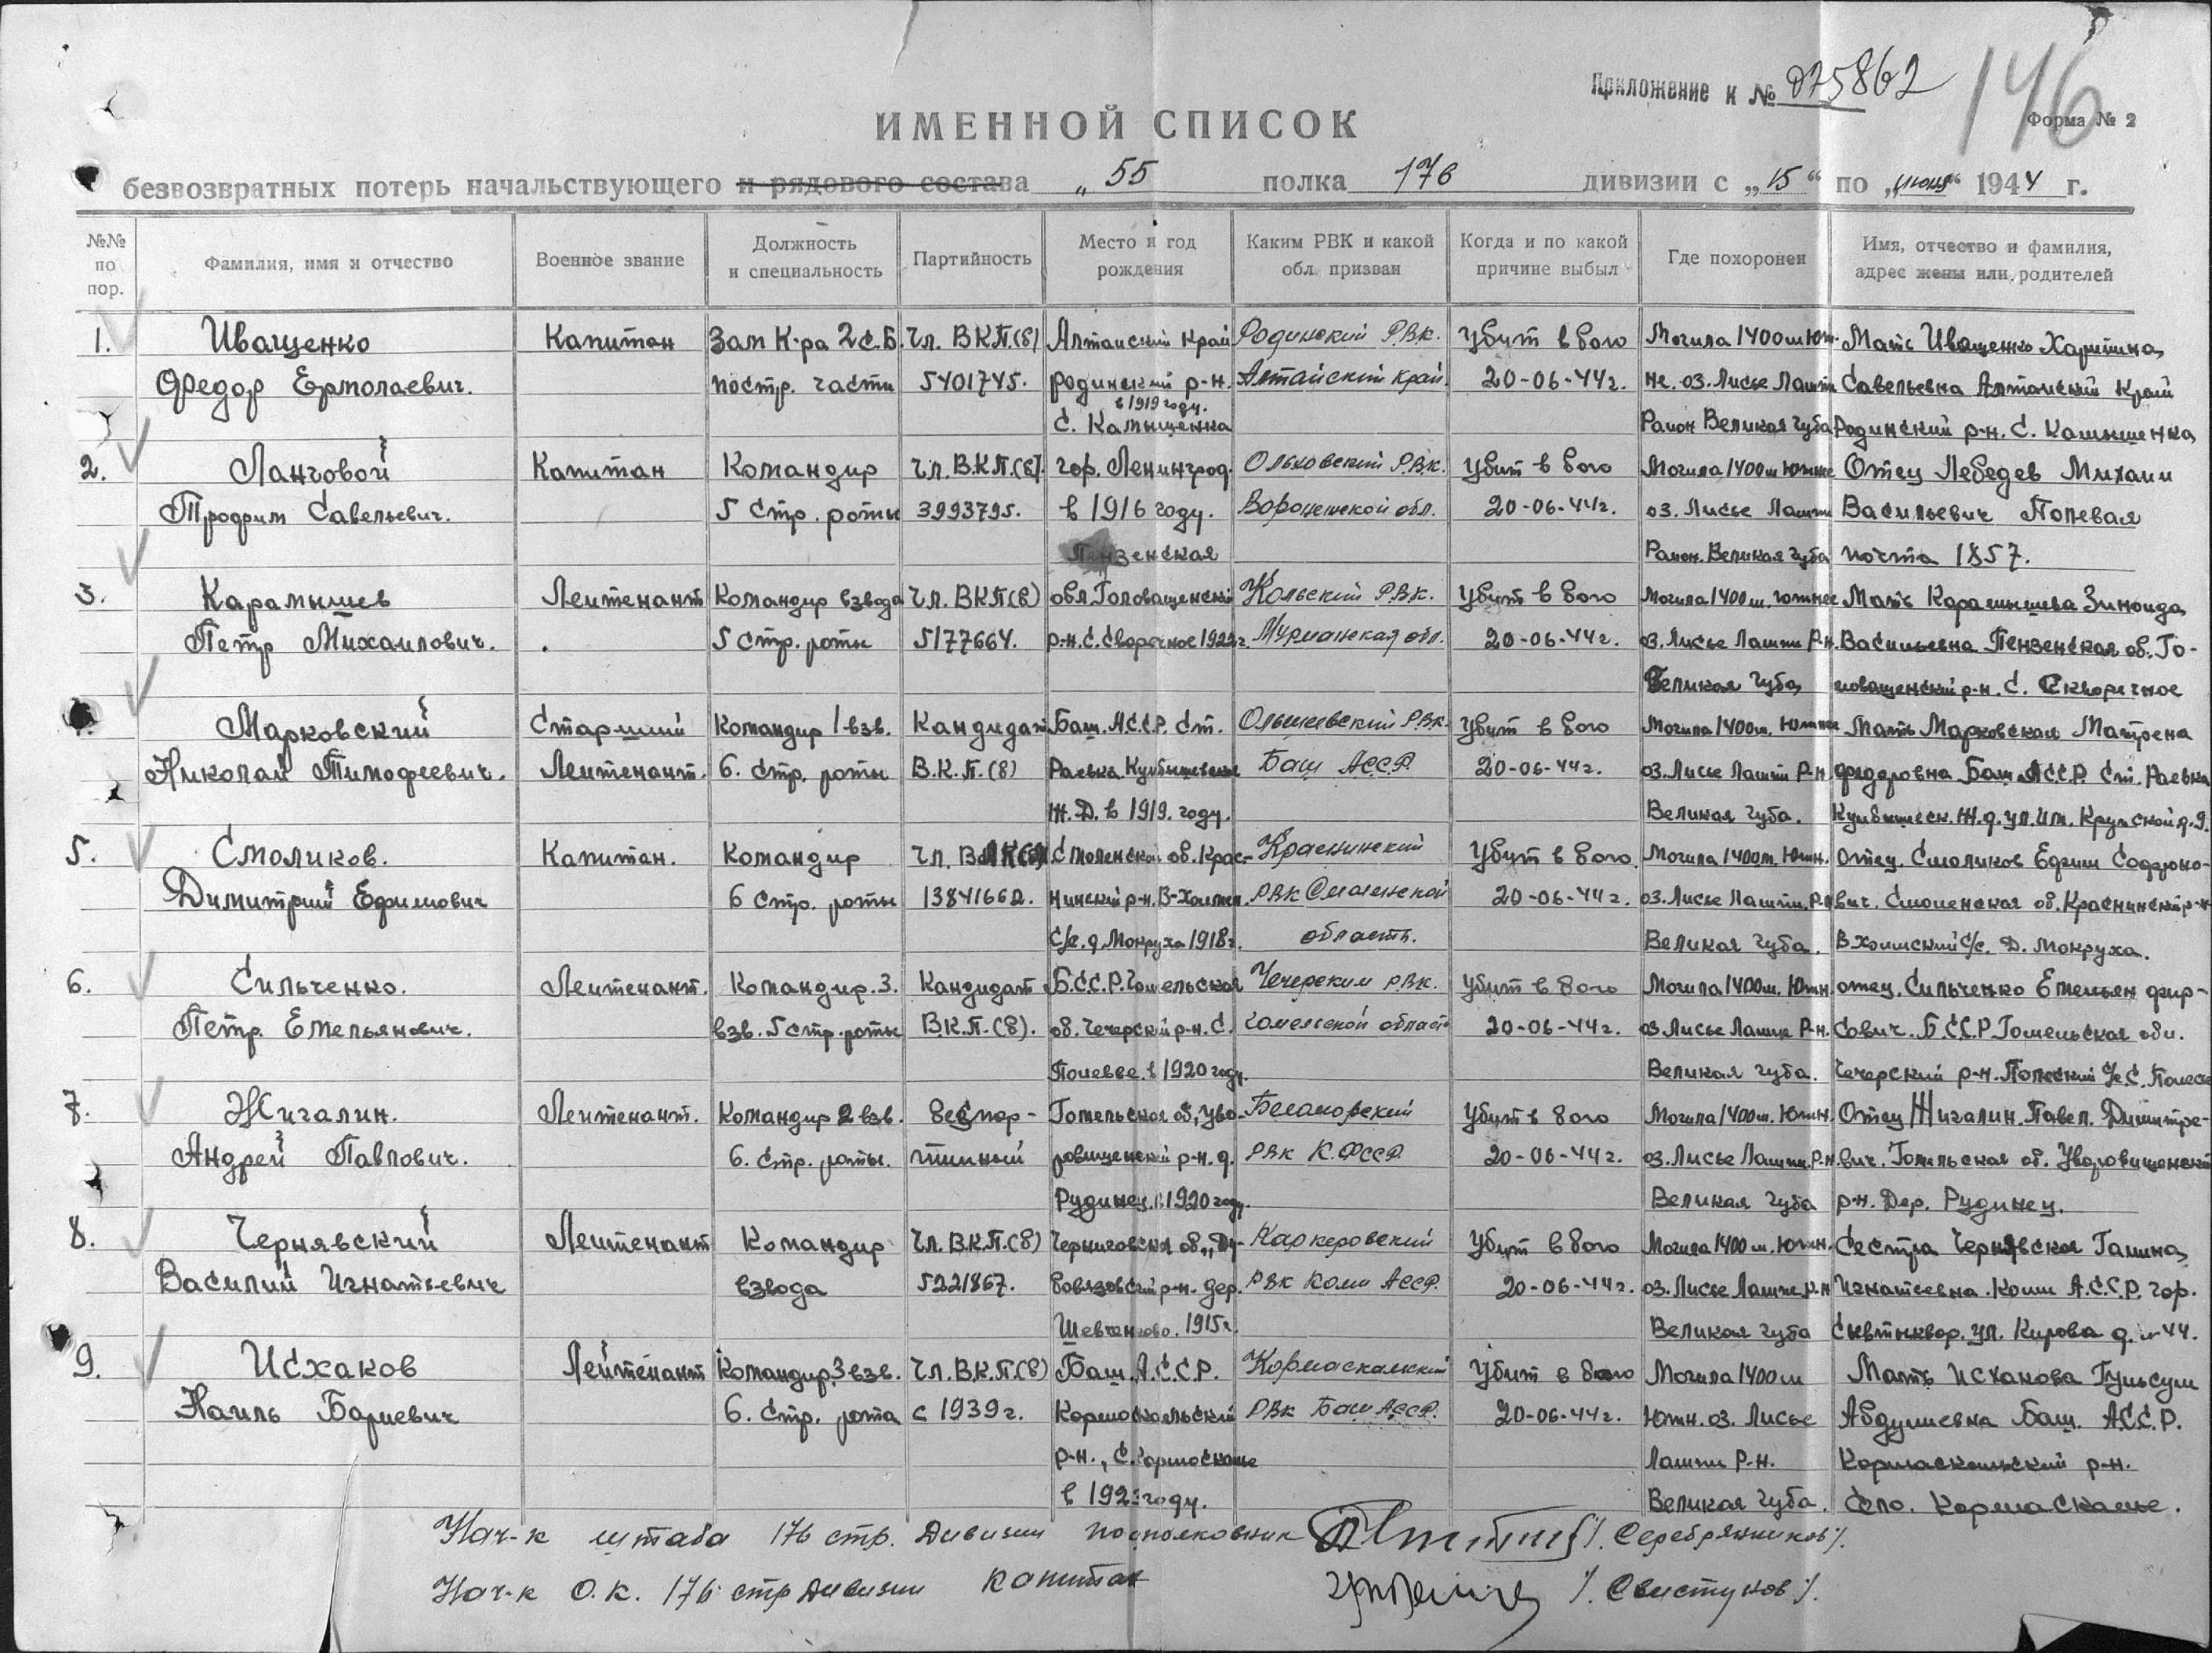 Приложение к № 075862
146
Форма № 2
ИМЕННОЙ СПИСОК
безвозвратных потерь начальствующего и рядового состава „ 55 полка 176 дивизии с „ 15 “ по „ июня “ 1944 г.
№№ по пор.
Фамилия, имя и отчество
Военное звание
Должность и специальность
Партийность
Место и год рождения
Каким РВК и какой обл. призван
Когда и по какой причине выбыл
Где похоронен
Имя, отчество и фамилия, адрес жены или родителей
1. Иващенко Капитан Зам К-ра 2 С.Б. Чл. ВКП.(б) Алтайский край Родинский Р.В.К. Убит в бою Могила 1400 м Юж- Мать Иващенко Харитина
Федор Ермолаевич. по стр. части 5401745. Родинский р-н. Алтайский край. 20-06-44г. не. оз. Лисье Лампи Савельевна Алтайский Край
в 1919 году.
С. Камышенка Район Великая Губа Родинский р-н. С. Камышенка
2. Ланговой Капитан Командир Чл. В.К.П.(б). гор. Ленинград. Ольховский Р.В.К. Убит в бою Могила 1400 м Южнее Отец Лебедев Михаил
Трофим Савельевич. 5 Стр. роты 3993795. в 1916 году. Воронежской обл. 20-06-44г. оз. Лисье Лампи Васильевич Полевая
Пензенская Район. Великая Губа почта 1857.
3. Карамышев Лейтенант Командир взвода Чл. ВКП(б) обл. Головащенский Кольский Р.В.К. Убит в бою Могила 1400 м. Южнее Мать Карамышева Зинаида
Петр Михайлович. 5 стр. роты 5177664. р-н. С. Скворечное 1922г. Мурманская обл. 20-06-44г. оз. Лисье Лампи Р-н. Васильевна Пензенская об. Го-
Великая Губа, ловащенский р-н. С. Скворечное
Марковский Старший Командир 1 взв. Кандидат Баш. АССР. Ст. Ольшеевский Р.В.К. Убит в бою Могила 1400 м. Южнее Мать Марковская Матрена
Николай Тимофеевич. Лейтенант. 6. Стр. роты В.К.П.(б) Раевка Куйбышевская Баш АССР. 20-06-44г. оз. Лисье Лампи Р-н Федоровна Баш АССР. Ст. Раевка
Ж.Д. в 1919. году. Великая Губа. Куйбышевск. Ж.д. ул. Им. Крупской д. 9.
5. Смоликов. Капитан. Командир Чл. Смоленская об. Крас- Краснинский Убит в бою. Могила 1400 м. Южн. Отец. Смоликов Ефим
Димитрий Ефимович 6 Стр. роты 1384166 нинский р-н. РВК Смоленской 20-06-44г. оз. Лисье Лампи. Р-н вич. Смоленская об. Краснинский р-н
С/с. д. Мокруха 1918г. область. Великая Губа. С/с. Д. Мокруха.
6. Сильченко. Лейтенант. Командир. 3. Кандидат Б.С.С.Р. Гомельская Чечерским Р.В.К. Убит в бою Могила 1400 м. Южн. отец. Сильченко Емельян Фир-
Петр. Емельянович. взв. 5 стр. роты В.К.П.(б). об. Чечерский р-н. С. Гомельской области 20-06-44г. оз Лисье Лампи Р-н. сович. Б.С.С.Р. Гомельская обл.
в 1920 году. Великая Губа. Чечерский р-н.
7. Жигалин. Лейтенант. Командир 2 взв. беспар- Гомельская об., Ува- Беломорский Убит в бою Могила 1400 м. Южн. Отец Жигалин. Павел. Димитре-
Андрей Павлович. 6. Стр. роты. тийный ровищенский р-н. д. РВК К.ФССР. 20-06-44г. оз. Лисье Лампи. Р-н вич. Гомельская об. Уваровищенский
Рудинец. в 1920 году. Великая Губа р-н. Дер. Рудинец.
8. Чернявский Лейтенант Командир Чл. В.К.П.(б) Черниговская об., Ду- Каркеровский Убит в бою Могила 1400 м. Южн. Сестра Чернявская Галина
Василий Игнатьевич взвода 5221867. бовязовский р-н. дер. РВК Коми АССР. 20-06-44г. оз. Лисье Лампи Р-н Игнатьевна. Коми А.С.С.Р. Гор.
Шевченково. 1915г. Великая Губа Сывтыквор. ул. Кирова д. 44.
9. Исхаков Лейтенант Командир 3 взв. Чл. В.К.П.(б) Баш. А.С.С.Р. Кормаскалинский Убит в бою Могила 1400 м Мать Исхакова Гульсум
Наиль Бариевич 6. Стр. рота с 1939г. РВК Баш АССР. 20-06-44г. Южн. оз. Лисье Баш. А.С.С.Р.
р-н., С. Лампи Р-н. р-н.
в 1923 году. Великая Губа. Село. Кармаскалье.
Нач-к штаба 176 стр. дивизии подполковник /. Серебрянников /.
Нач-к О.К. 176 стр дивизии капитан /. Свистунов /.